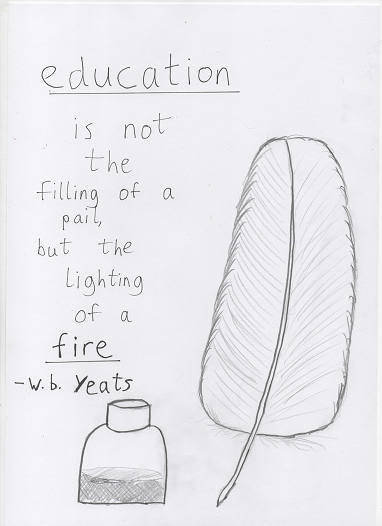 education
is not
the
filling of a
pail,
but the
lighting
of a
fire
-w.b. Yeats